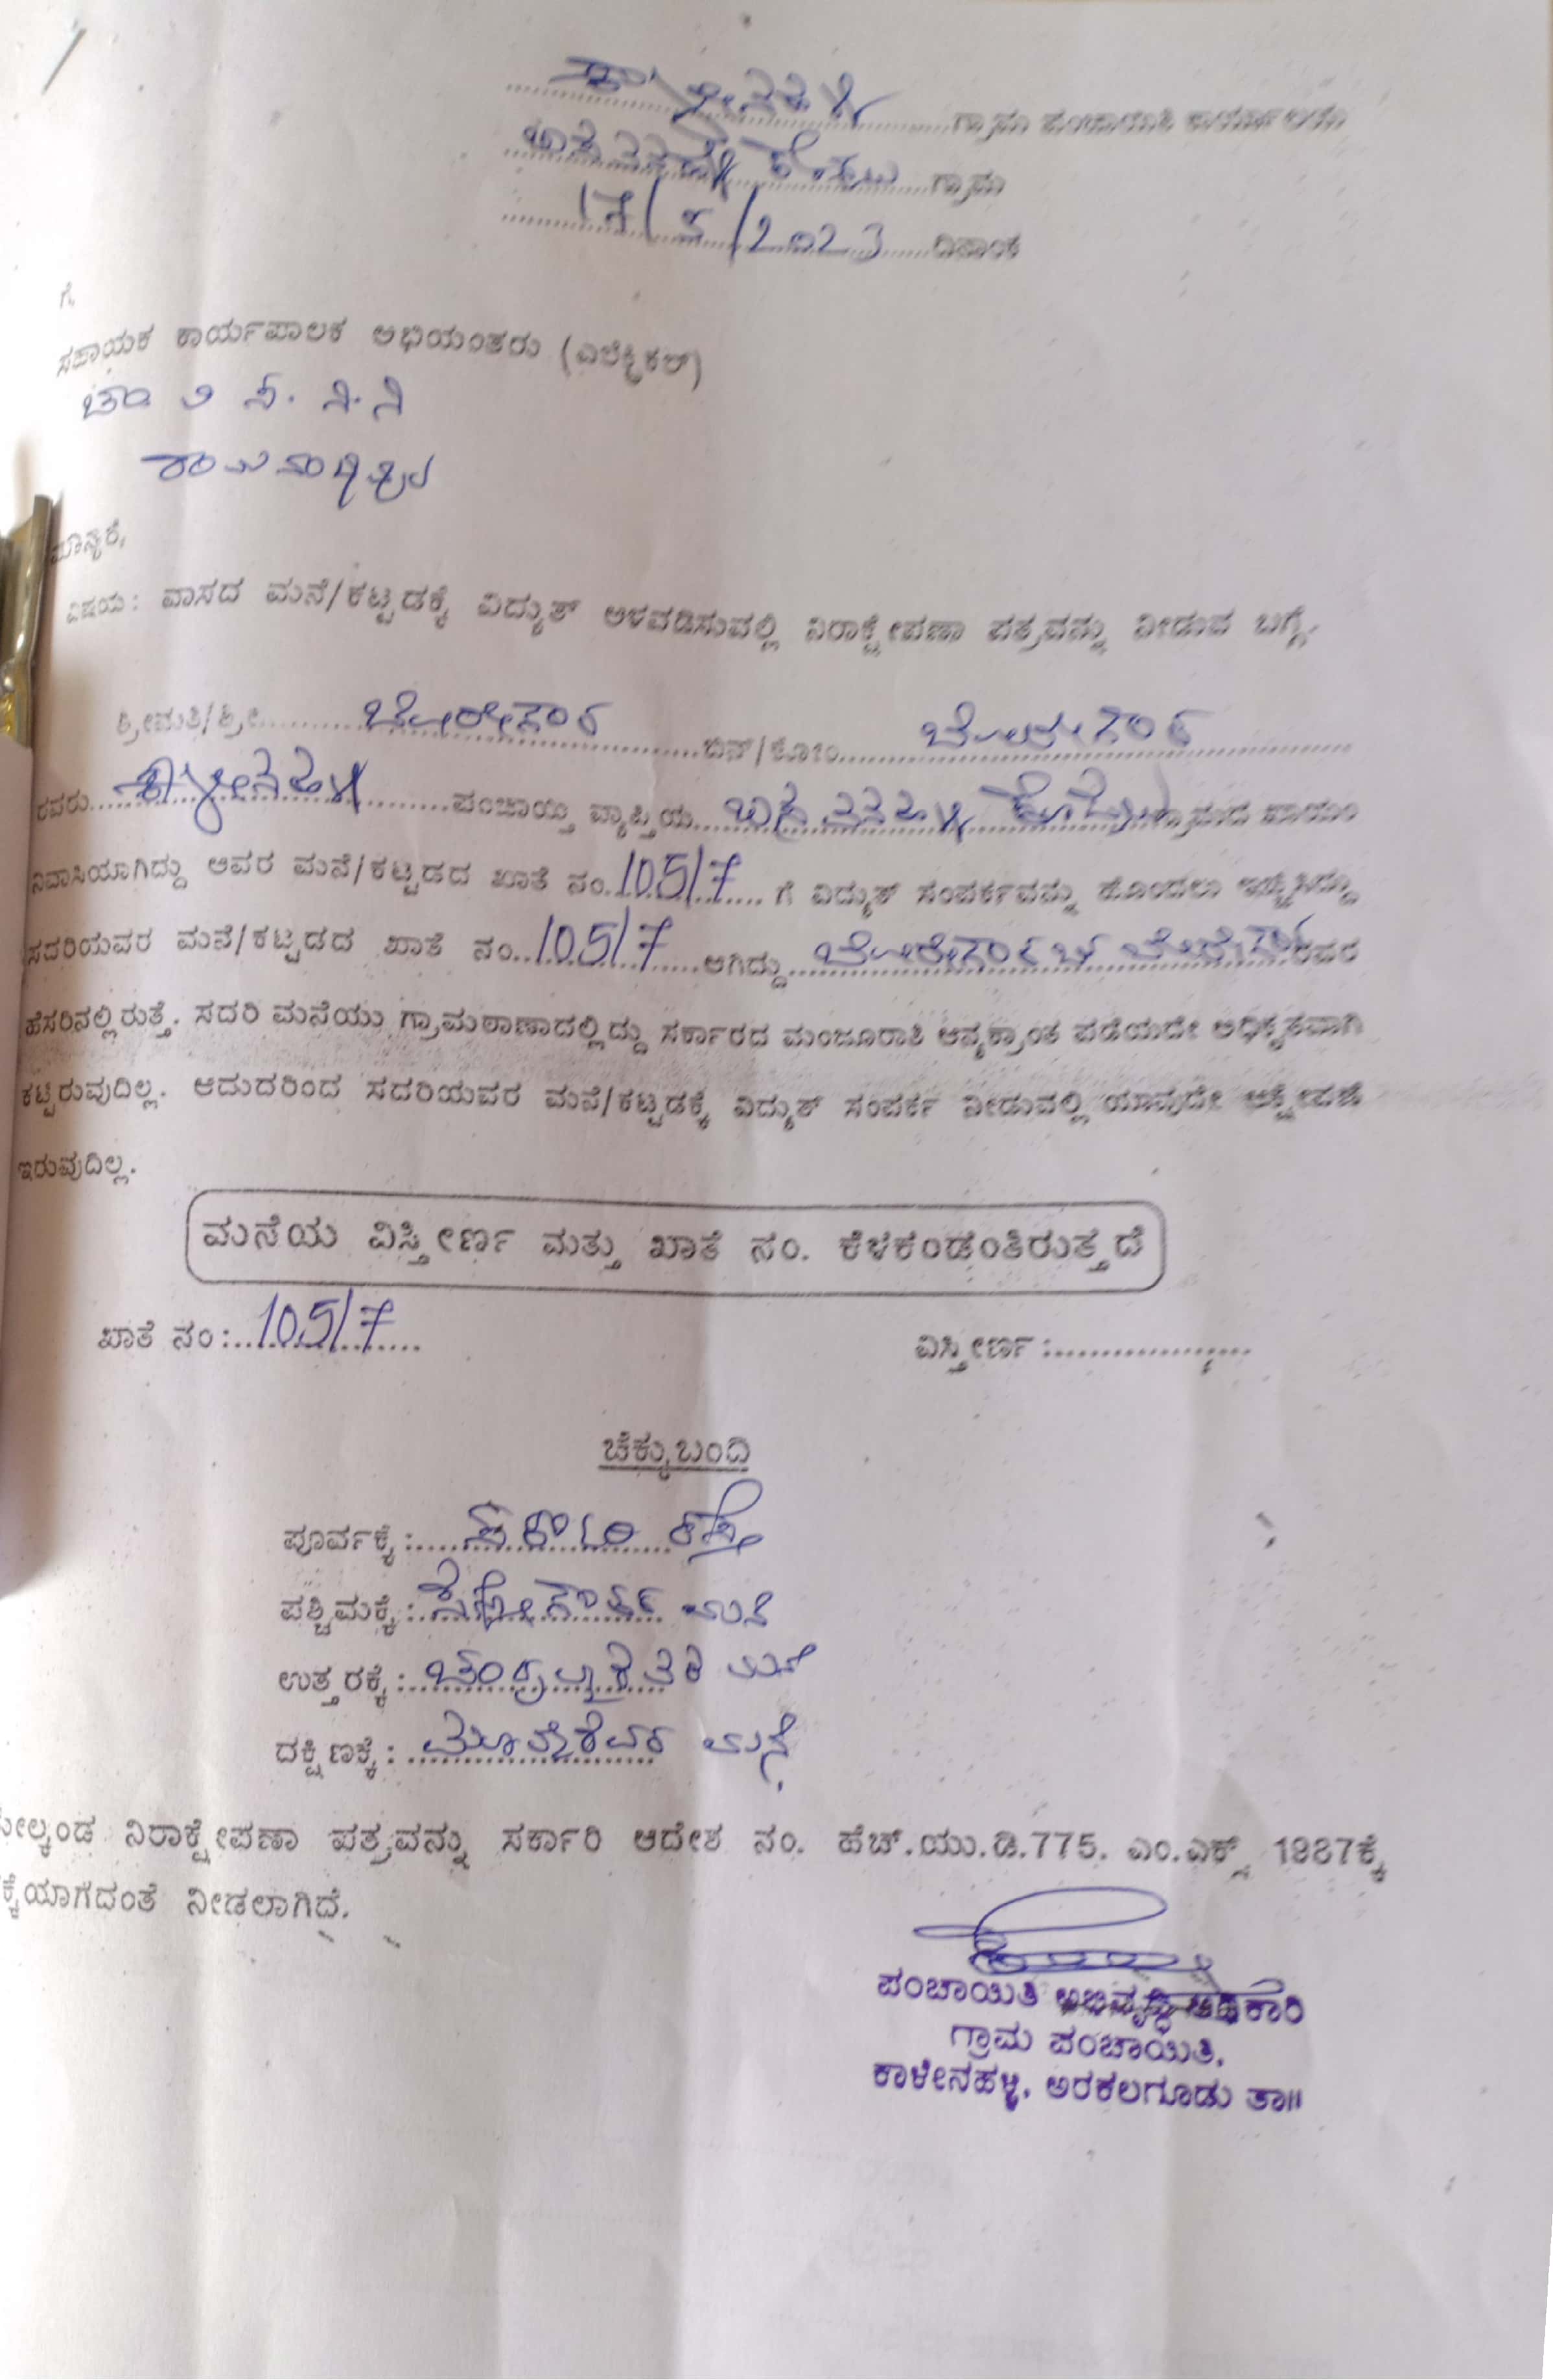 ಗ್ರಾಮ ಪಂಚಾಯಿತಿ ಕಾರ್ಯಾಲಯ
ಗ್ರಾಮ
17/5/2023 ದಿನಾಂಕ
ಗೆ,
ಸಹಾಯಕ ಕಾರ್ಯಪಾಲಕ ಅಭಿಯಂತರು (ಎಲೆಕ್ಟ್ರಿಕಲ್)
ಮಾನ್ಯರೆ,
ವಿಷಯ: ವಾಸದ ಮನೆ/ಕಟ್ಟಡಕ್ಕೆ ವಿದ್ಯುತ್ ಅಳವಡಿಸುವಲ್ಲಿ ನಿರಾಕ್ಷೇಪಣಾ ಪತ್ರವನ್ನು ನೀಡುವ ಬಗ್ಗೆ.
ಶ್ರೀಮತಿ/ಶ್ರೀ ಬೋರೇಗೌಡ ಬಿನ್/ಕೋಂ
ರವರು ಕಾಳೇನಹಳ್ಳಿ ಪಂಚಾಯ್ತಿ ವ್ಯಾಪ್ತಿಯ ಗ್ರಾಮದ ಖಾಯಂ
ನಿವಾಸಿಯಾಗಿದ್ದು ಅವರ ಮನೆ/ಕಟ್ಟಡದ ಖಾತೆ ನಂ. 105/7 ಗೆ ವಿದ್ಯುತ್ ಸಂಪರ್ಕವನ್ನು ಹೊಂದಲು ಇಚ್ಛಿಸಿದ್ದು
ಸದರಿಯವರ ಮನೆ/ಕಟ್ಟಡದ ಖಾತೆ ನಂ. 105/7 ಆಗಿದ್ದು ಬೋರೇಗೌಡ ರವರ
ಹೆಸರಿನಲ್ಲಿರುತ್ತೆ. ಸದರಿ ಮನೆಯು ಗ್ರಾಮಠಾಣಾದಲ್ಲಿದ್ದು ಸರ್ಕಾರದ ಮಂಜೂರಾತಿ ಪಡೆಯದೇ ಅಧಿಕೃತವಾಗಿ
ಕಟ್ಟಿರುವುದಿಲ್ಲ. ಆದುದರಿಂದ ಸದರಿಯವರ ಮನೆ/ಕಟ್ಟಡಕ್ಕೆ ವಿದ್ಯುತ್ ಸಂಪರ್ಕ ನೀಡುವಲ್ಲಿ ಯಾವುದೇ ಆಕ್ಷೇಪಣೆ
ಇರುವುದಿಲ್ಲ.
ಮನೆಯ ವಿಸ್ತೀರ್ಣ ಮತ್ತು ಖಾತೆ ನಂ. ಕೆಳಕಂಡಂತಿರುತ್ತದೆ
ಖಾತೆ ನಂ: 105/7 ವಿಸ್ತೀರ್ಣ:
ಚೆಕ್ಕುಬಂದಿ
ಪೂರ್ವಕ್ಕೆ: ಸರ್ಕಾರಿ ರಸ್ತೆ
ಪಶ್ಚಿಮಕ್ಕೆ: ಮನೆ
ಉತ್ತರಕ್ಕೆ: ಮನೆ
ದಕ್ಷಿಣಕ್ಕೆ: ಮನೆ
ಮೇಲ್ಕಂಡ ನಿರಾಕ್ಷೇಪಣಾ ಪತ್ರವನ್ನು ಸರ್ಕಾರಿ ಆದೇಶ ನಂ. ಹೆಚ್.ಯು.ಡಿ.775. ಎಂ.ಎಕ್ಸ್ 1987ಕ್ಕೆ
ಕ್ಕೆಯಾಗದಂತೆ ನೀಡಲಾಗಿದೆ.
ಪಂಚಾಯಿತಿ ಅಭಿವೃದ್ಧಿ ಅಧಿಕಾರಿ
ಗ್ರಾಮ ಪಂಚಾಯಿತಿ,
ಕಾಳೇನಹಳ್ಳಿ, ಅರಕಲಗೂಡು ತಾ||